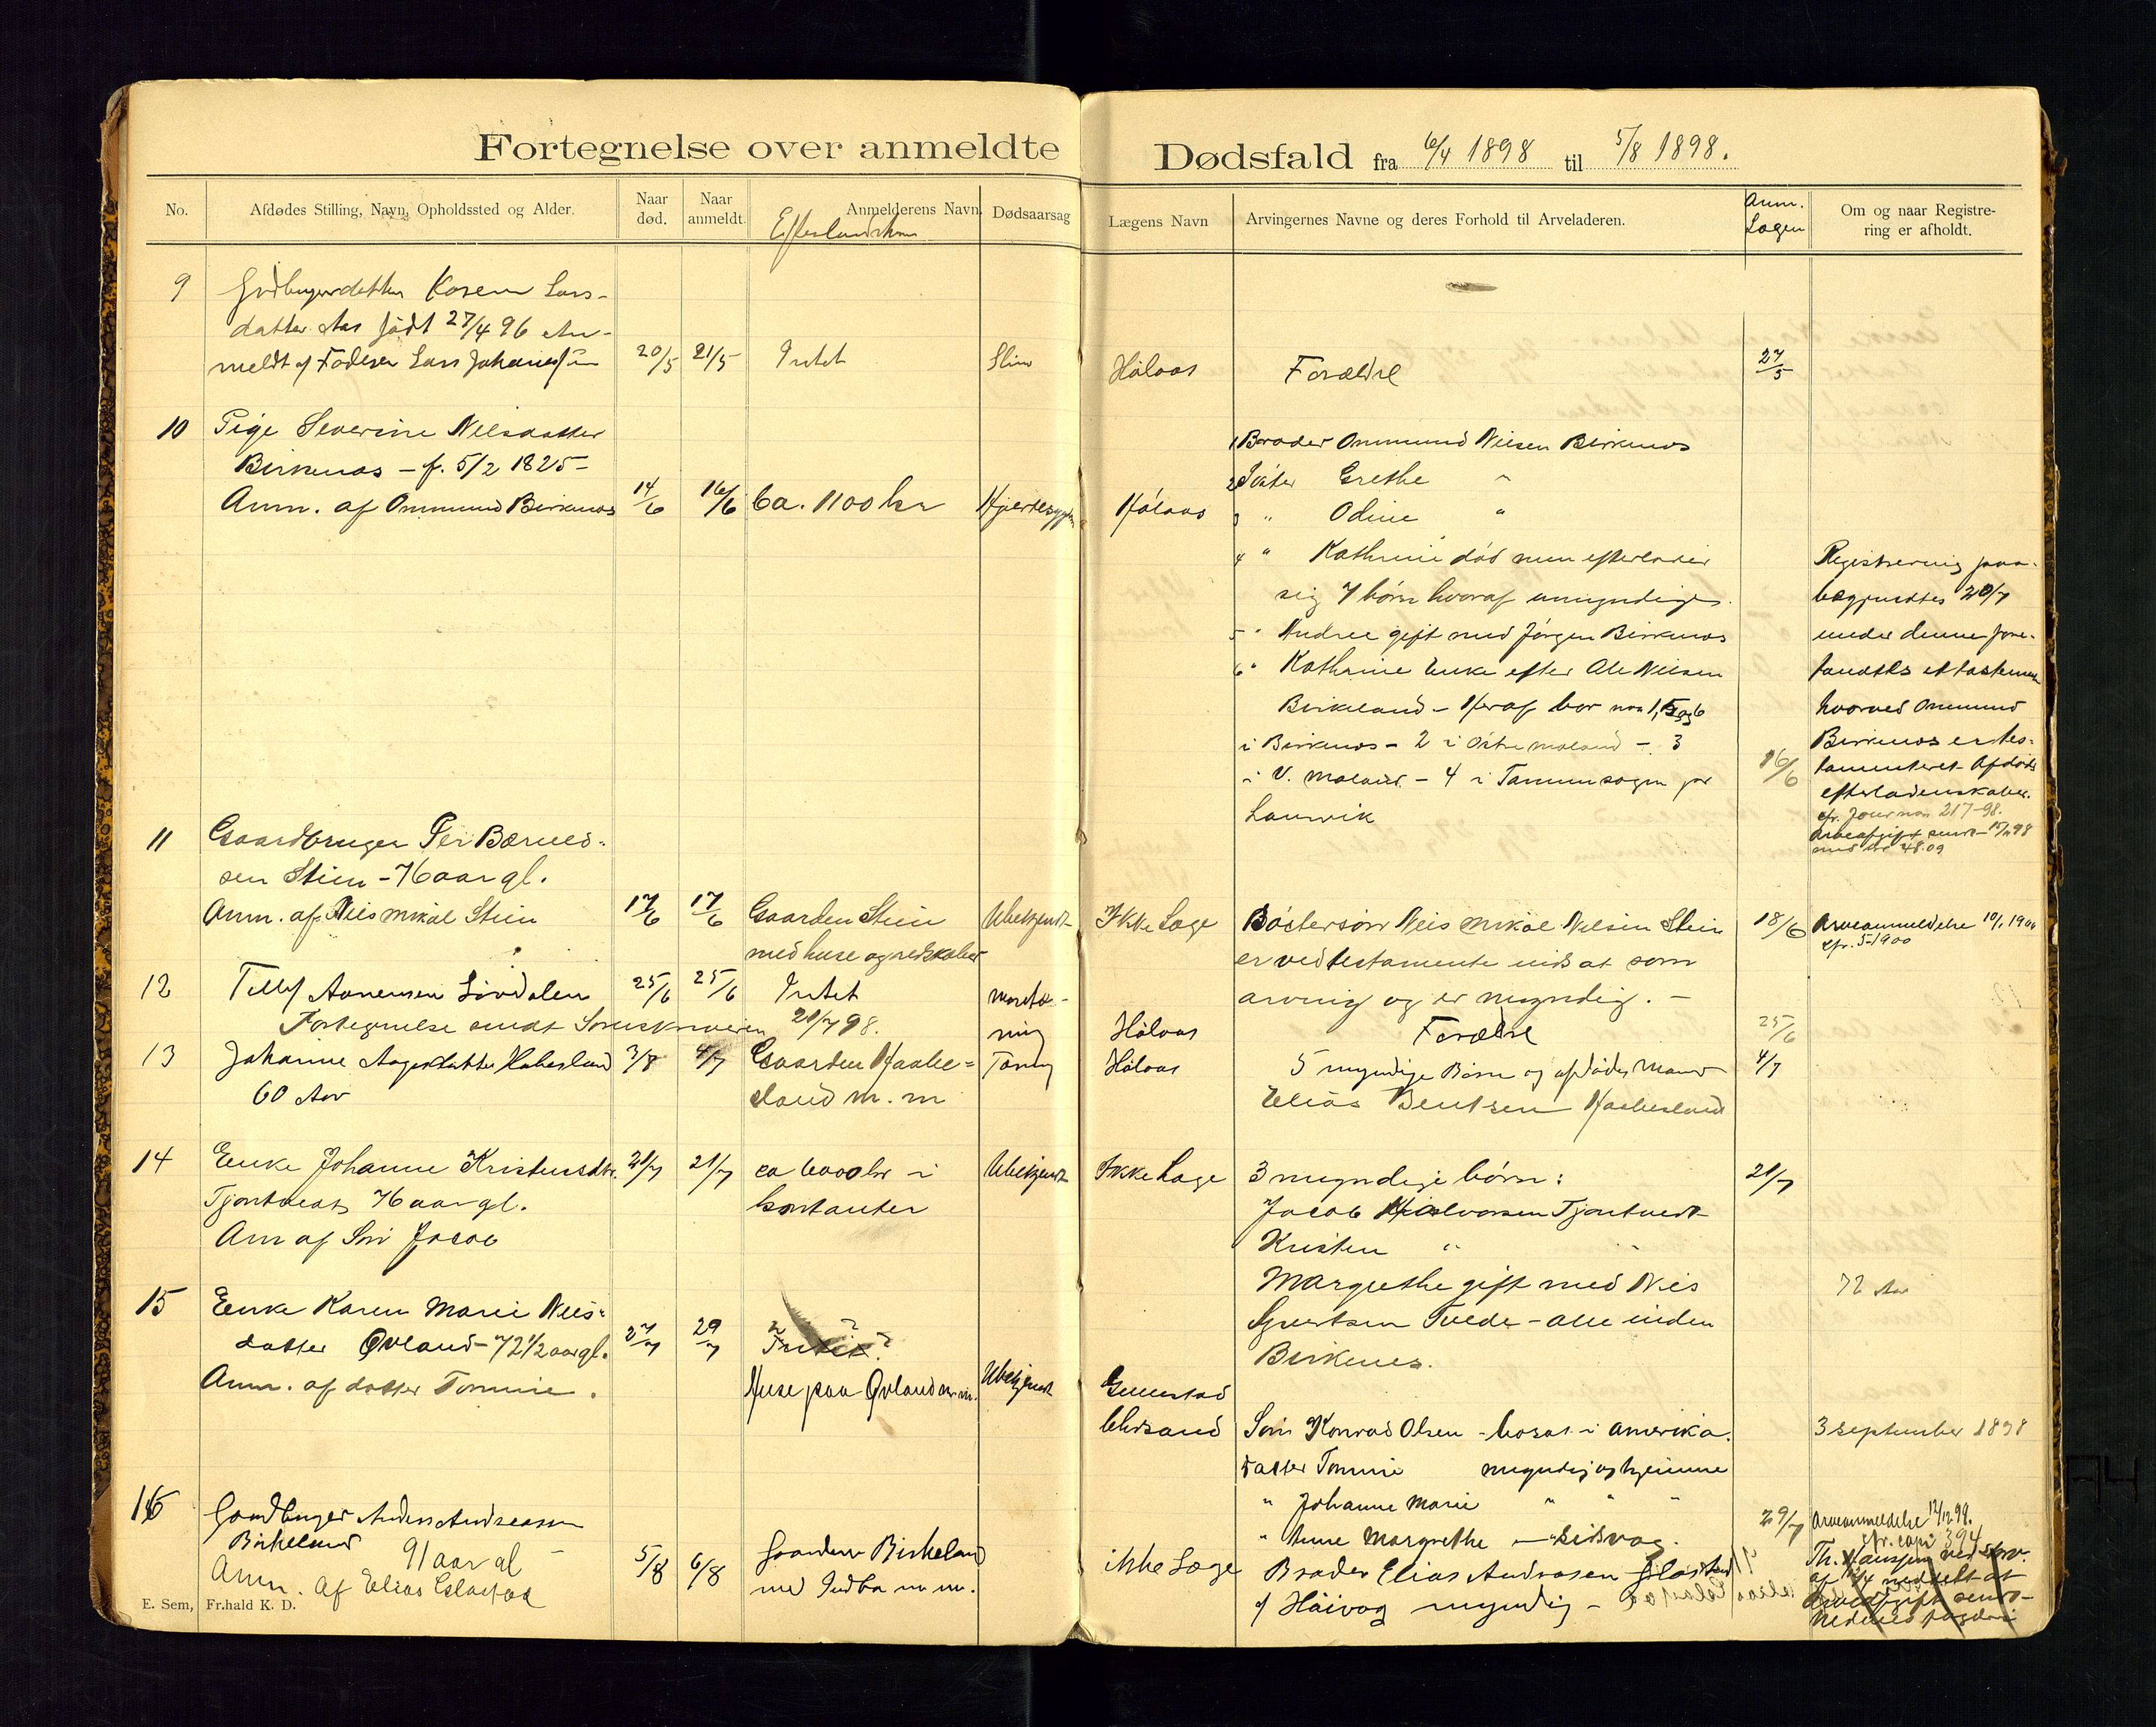 Fortegnelse over anmeldte
Dødsfald fra 6/4 1898 til 5/8 1898.
No.
Afdødes Stilling, Navn, Opholdssted og Alder.
Naar død.
Naar anmeldt.
Anmelderens Navn
Dødsaarsag
Lægens Navn
Arvingernes Navne og deres Forhold til Arveladeren.
Anm.
Om og naar Registre-
ring er afholdt.
9
Karen Lars-
datter Aas født 27/4 96 An-
meldt af Faderen Lars
20/5 21/5 Intet
Håloas
Forældre
27/5
10 Pige Severine Nilsdatter
Birkenes - f. 5/2 1825 -
Anm. af Ommund Birkenes 14/6 16/6 Ca. 1100 kr
Håloas
1 Broder Ommund Nilsen Birkenes
2 Grethe "
3 " Odine "
4 " Kathrine død men efterlader
sig 7 børn hvoraf umyndige.
5 " Andrea gift med Jörgen Birkenes
6 " Kathrine Enke efter Ole Nilsen
Birkeland - Heraf bor
i Birkenes - 2 i Østre moland - 3
i V. moland - 4 i Tanum sogn pr
Laurvik
16/6
Registrering paa-
begyndtes 20/7
under denne fore-
fandtes et testament
hvorved Ommund
Birkenes er tes-
tamenteret Afdødes
efterladenskaber.
cfr. Jour no 217-98.
med kr 48.09
11 Gaardbruger Per Bærnes-
sen Stien - 76 aar gl.
Anm. af Nils Mikal Stien
17/6 17/6 Gaarden Stien
med huse og redskaber
Ubekjendt
Ikke Læge
Söstersön Nils Mikal Nilsen Stien
er ved testamente indsat som
arving og er myndig. -
18/6
Arveanmeldelse 10/1 1900
cfr. 5-1900
12 Tellef Aanensen Lövdalen 25/6 25/6 Intet
Fortegnelse sendt Sorenskriveren 21/7 98.
Håloas
Forældre
25/6
13 Johanne Aagesdatter Habesland 3/8 4/7 Gaarden Haabe-
60 Aar
sland m. m
Håloas
5 myndige Börn og afdødes Mand
Elias Bentsen Haabesland
4/7
14 Enke Johanne Kristensdtr. 21/7 21/7 ca 6000 kr i
Tjontveit 76 aar gl.
kontanter
Anm af Sön Jacob
Ubekjendt
Ikke Læge
3 myndige börn:
Jacob Halvorsen Tjontvedt
Kristen "
Margrethe gift med Nils
Tvede - alle inden
Birkenes.
21/7
72 Aar
15 Enke Karen Marie Nils-
datter Øvland - 72 1/2 aar gl. 27/7 29/7
Anm. af datter Tomine.
Huse paa Øvland m. m.
Ubekjendt
Chrsand
Sön Konrad Olsen - bosat i Amerika.
Datter Tomine myndig og hjemme
" Johanne Marie " " "
" Anne Margrethe
29/7
3 September 1898
16 Gaardbruger Anders Andreassen
Birkeland 91 aar gl -
Anm. af Elias
5/8 6/8 Gaarden Birkeland
med Indbo m. m.
ikke Læge
Broder Elias Andreasen
af Höivag myndig -
Arveanmeldelse 12/12 99.
cfr. copi 394
E. Sem, Fr.hald K. D.